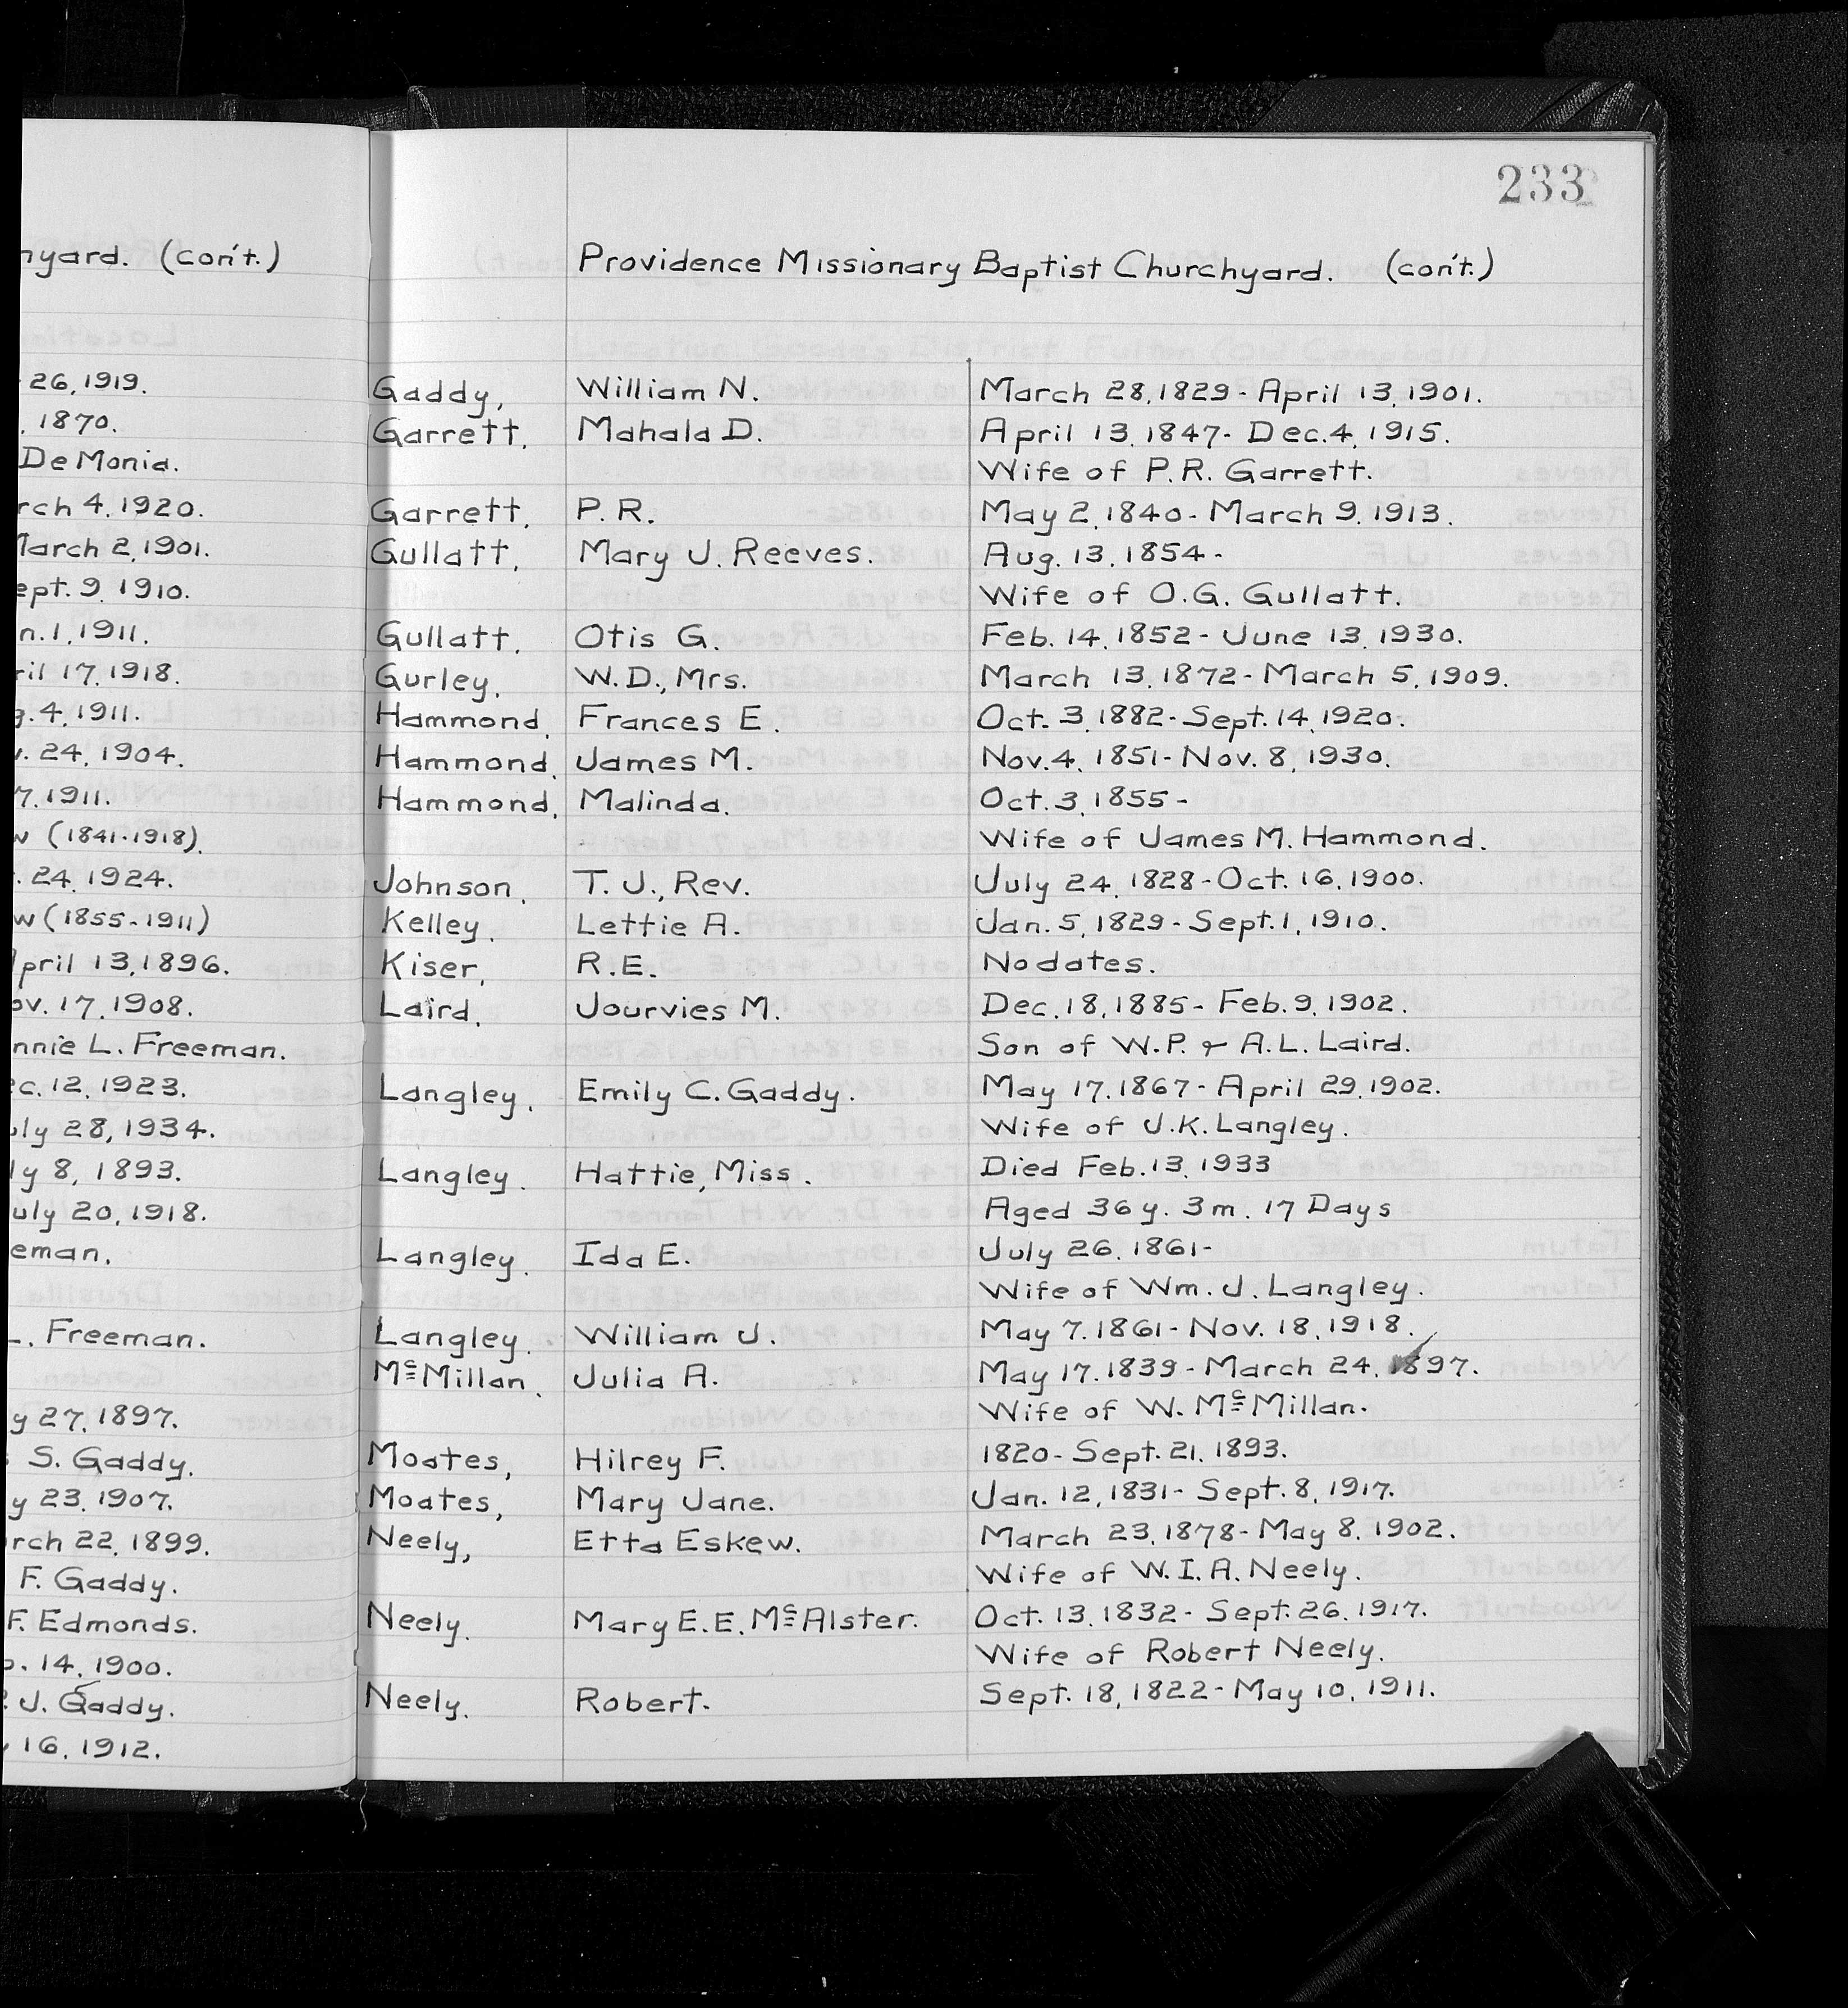 233
hyard. (con't.)
26, 1919.
, 1870.
De Monia.
rch 4, 1920.
March 2, 1901.
ept. 9, 1910.
n. 1, 1911.
ril 17, 1918.
g. 4, 1911.
v. 24, 1904.
7, 1911.
w (1841-1918).
. 24, 1924.
w (1855-1911)
April 13, 1896.
ov. 17, 1908.
nnie L. Freeman.
ec. 12, 1923.
uly 28, 1934.
ly 8, 1893.
uly 20, 1918.
eman.
L. Freeman.
y 27, 1897.
S. Gaddy.
y 23, 1907.
arch 22, 1899.
F. Gaddy.
F. Edmonds.
. 14, 1900.
J. Gaddy.
16, 1912.
Providence Missionary Baptist Churchyard. (con't.)
Gaddy, William N. March 28, 1829 - April 13, 1901.
Garrett, Mahala D. April 13, 1847 - Dec. 4, 1915.
Wife of P.R. Garrett.
Garrett, P. R. May 2, 1840 - March 9, 1913.
Gullatt, Mary J. Reeves. Aug. 13, 1854 -
Wife of O.G. Gullatt.
Gullatt, Otis G. Feb. 14, 1852 - June 13, 1930.
Gurley, W.D., Mrs. March 13, 1872 - March 5, 1909.
Hammond, Frances E. Oct. 3, 1882 - Sept. 14, 1920.
Hammond, James M. Nov. 4, 1851 - Nov. 8, 1930.
Hammond, Malinda. Oct. 3, 1855 -
Wife of James M. Hammond.
Johnson, T. J., Rev. July 24, 1828 - Oct. 16, 1900.
Kelley, Lettie A. Jan. 5, 1829 - Sept. 1, 1910.
Kiser, R.E. No dates.
Laird, Jourvies M. Dec. 18, 1885 - Feb. 9, 1902.
Son of W.P. & A.L. Laird.
Langley, Emily C. Gaddy. May 17, 1867 - April 29, 1902.
Wife of J.K. Langley.
Langley, Hattie, Miss. Died Feb. 13, 1933
Aged 36 y. 3 m. 17 Days
Langley, Ida E. July 26, 1861 -
Wife of Wm. J. Langley.
Langley, William J. May 7, 1861 - Nov. 18, 1918.
McMillan, Julia A. May 17, 1839 - March 24, 1897.
Wife of W. McMillan.
Moates, Hilrey F. 1820 - Sept. 21, 1893.
Moates, Mary Jane. Jan. 12, 1831 - Sept. 8, 1917.
Neely, Etta Eskew. March 23, 1878 - May 8, 1902.
Wife of W. I. A. Neely.
Neely, Mary E. E. McAlster. Oct. 13, 1832 - Sept. 26, 1917.
Wife of Robert Neely.
Neely, Robert. Sept. 18, 1822 - May 10, 1911.